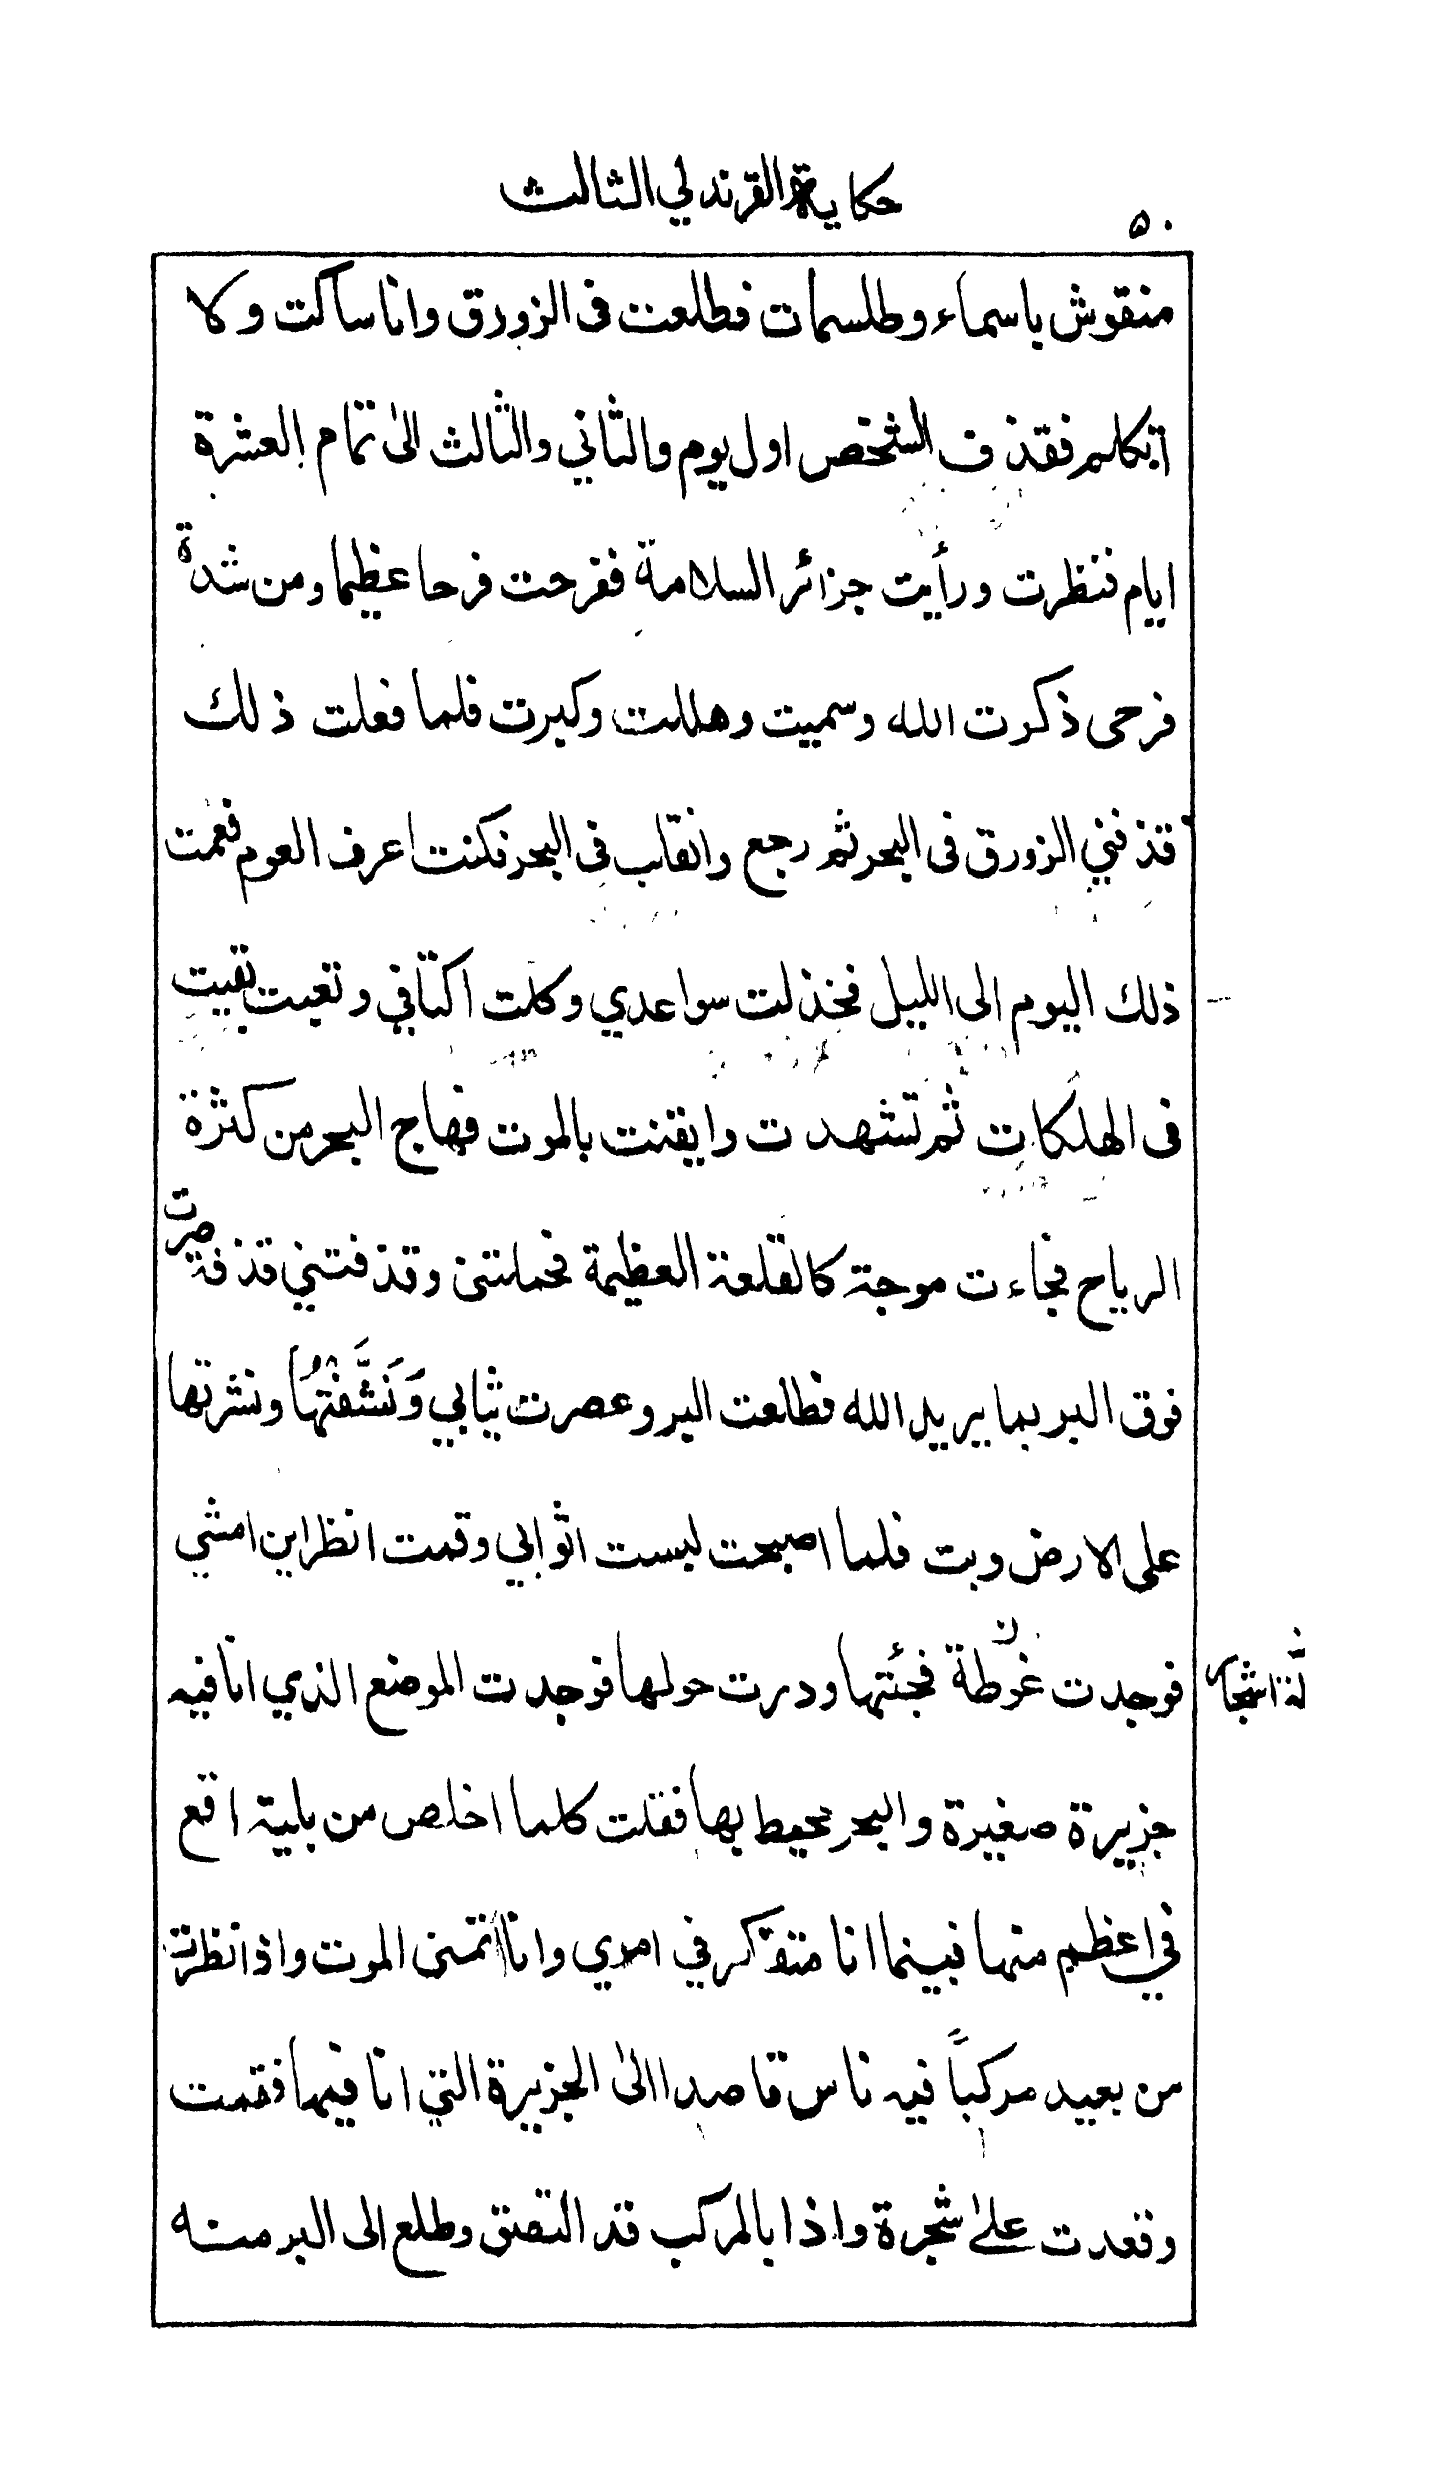 حكاية القرندلي الثالث
٥٠
منقوش باسماء وطلسمات فطلعت فى الزورق وانا ساكت ولا
اتكلم فقذف الشخص اول يوم والثاني والثالث الىٰ تمام العشرة
ايام فنظرت ورأيت جزائر السلامة ففرحت فرحا عظيما ومن شدة
فرحى ذكرت الله وسميت وهللت وكبرت فلما فعلت ذلك
قذفني الزورق فى البحر ثم رجع وانقلب فى البحر فكنت اعرف العوم فعمت
ذلك اليوم الى الليل فخذلت سواعدي وكلّت اكتافي وتعبت بقيت
فى الهلكات ثم تشهدت وايقنت بالموت فهاج البحر من كثرة
الرياح فجاءت موجة كالقلعة العظيمة فحملتنى وقذفتني قذفة صرت
فوق البر بما يريد الله فطلعت البر وعصرت ثيابي وَنَشَّفْتُهَا ونشرتها
على الارض وبت فلما اصبحت لبست اثوابي وقمت انظر اين امشي
فوجدت غُوطة فجئتها ودرت حولها فوجدت الموضع الذي انا فيه
ن
اشجار
جزيرة صغيرة والبحر محيط بها فقلت كلما اخلص من بلية اقع
في اعظم منها فبينما انا متفكر في امري وانا اتمنى الموت واذا نظرت
من بعيد مركباً فيه ناس قاصدا الىٰ الجزيرة التي انا فيها فقمت
وقعدت علىٰ شجرة واذا بالمركب قد التصق وطلع الى البر منه